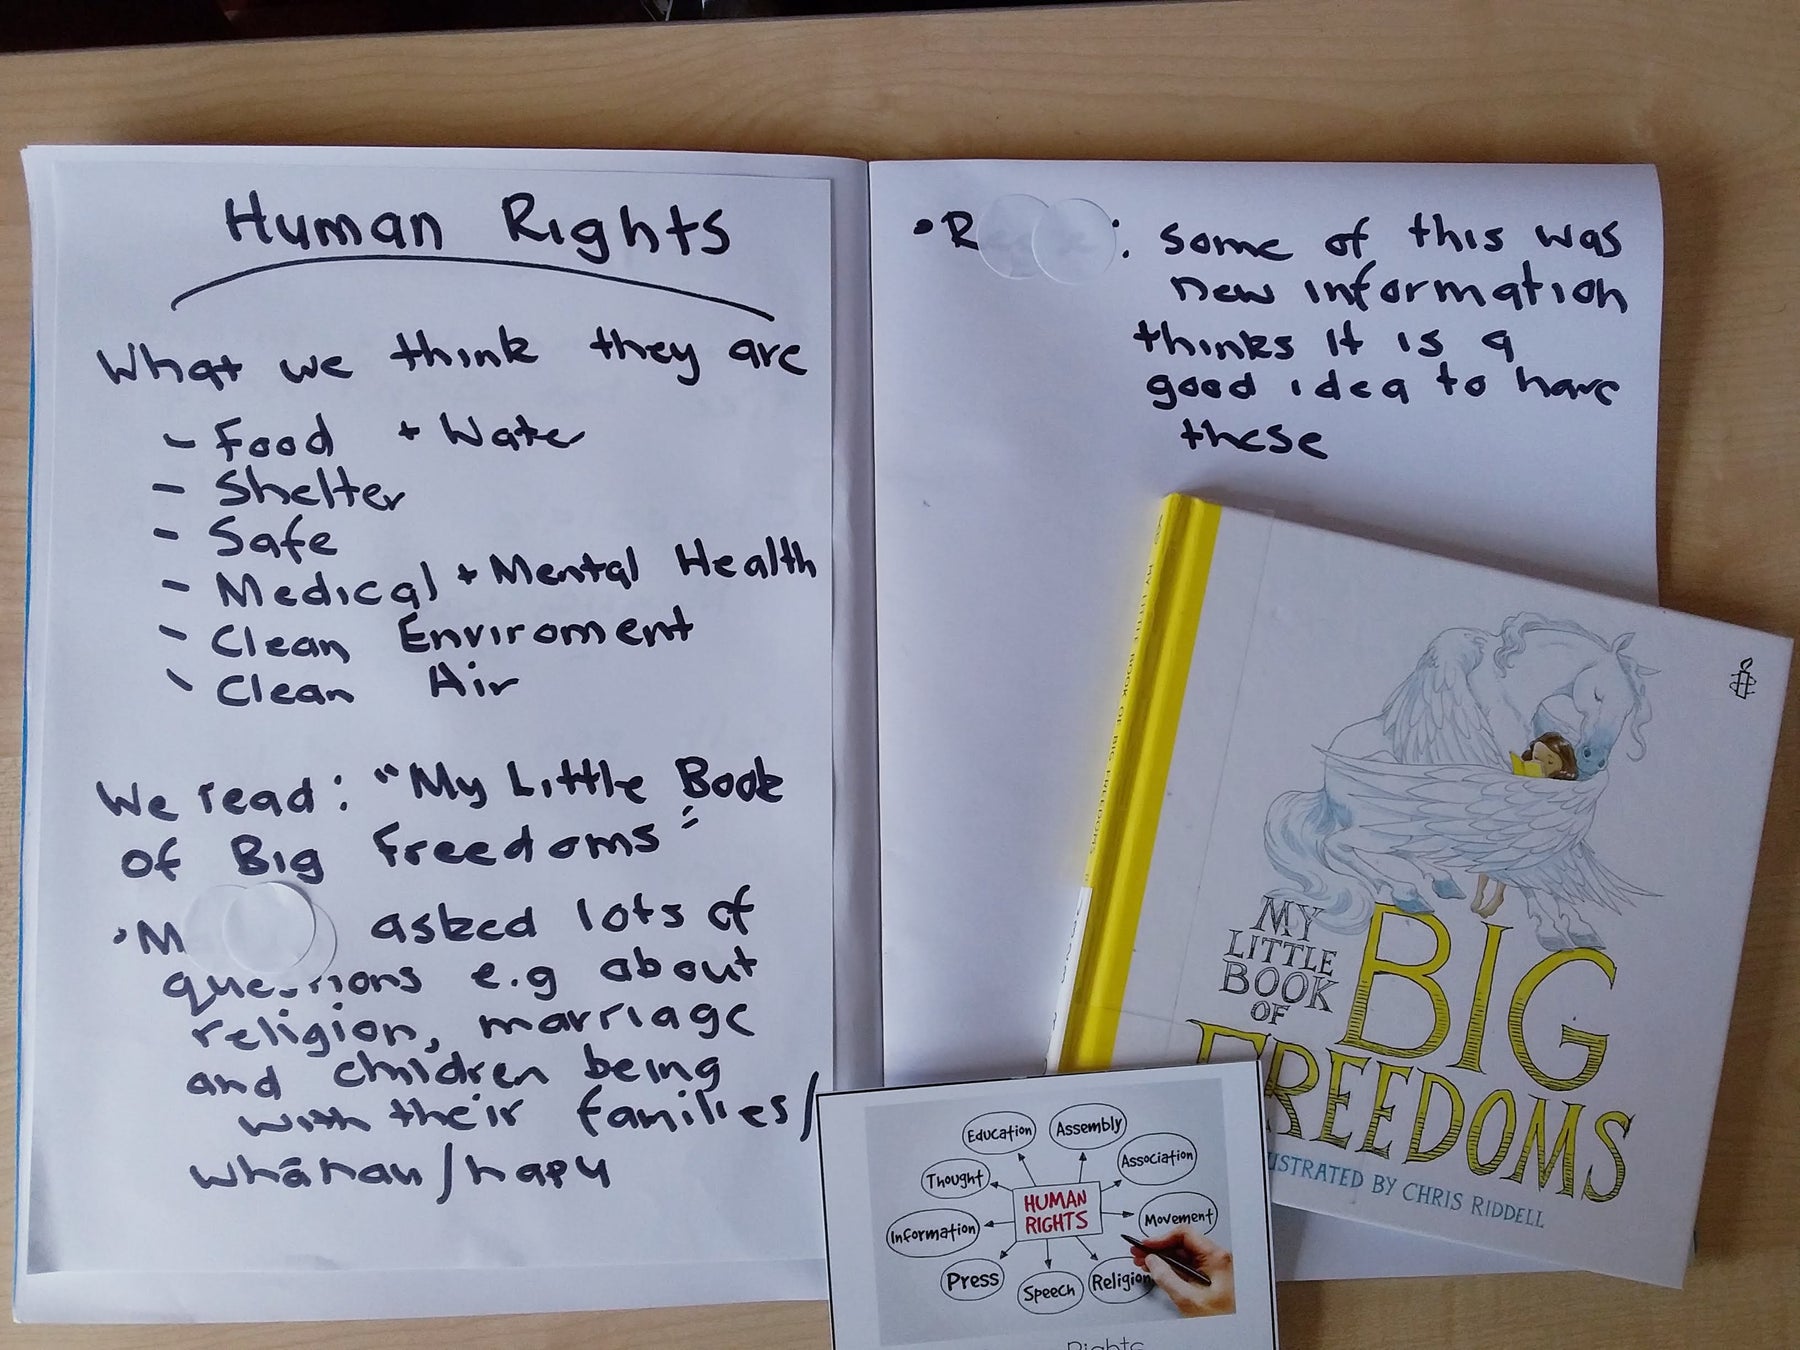 Human Rights
What we think they are
- Food + Water
- Shelter
- Safe
- Medical + Mental Health
- Clean Enviroment
- Clean Air
We read: "My Little Book
of Big Freedoms"
• M asked lots of
questions e.g about
religion, marriage
and children being
with their families/
whānau/hapu
• R : some of this was
new information
thinks it is a
good idea to have
these
MY LITTLE BOOK OF BIG FREEDOMS
MY
LITTLE
BOOK
OF
BIG
FREEDOMS
USTRATED BY CHRIS RIDDELL
Education
Assembly
Thought
Association
HUMAN
RIGHTS
Information
Movement
Press
Speech
Religion
Rights